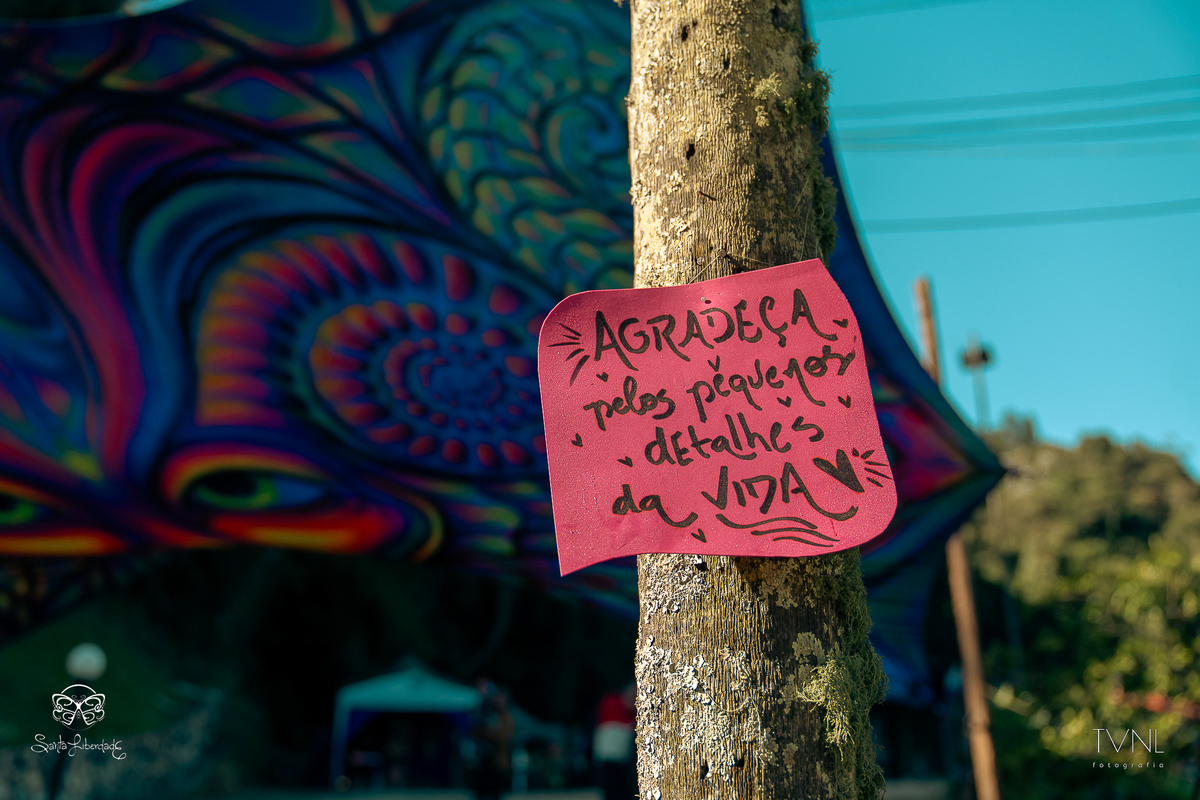 AGRADEÇA
pelos pequenos
detalhes
da VIDA
Santa Liberdade
TVNL
fotografia